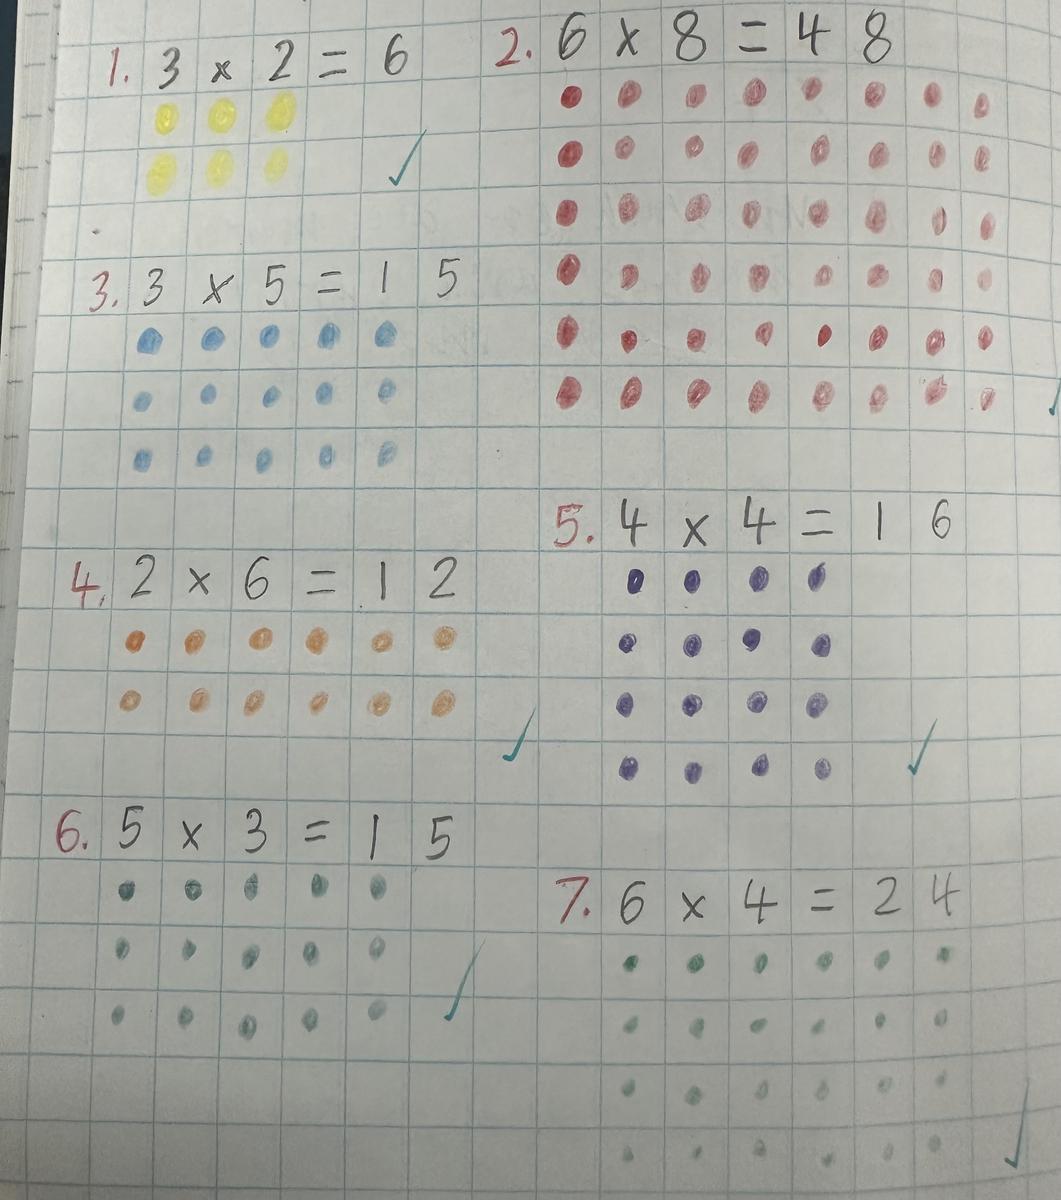 1. 3 x 2 = 6
2. 6 x 8 = 48
3. 3 x 5 = 15
4. 2 x 6 = 12
5. 4 x 4 = 16
6. 5 x 3 = 15
7. 6 x 4 = 24